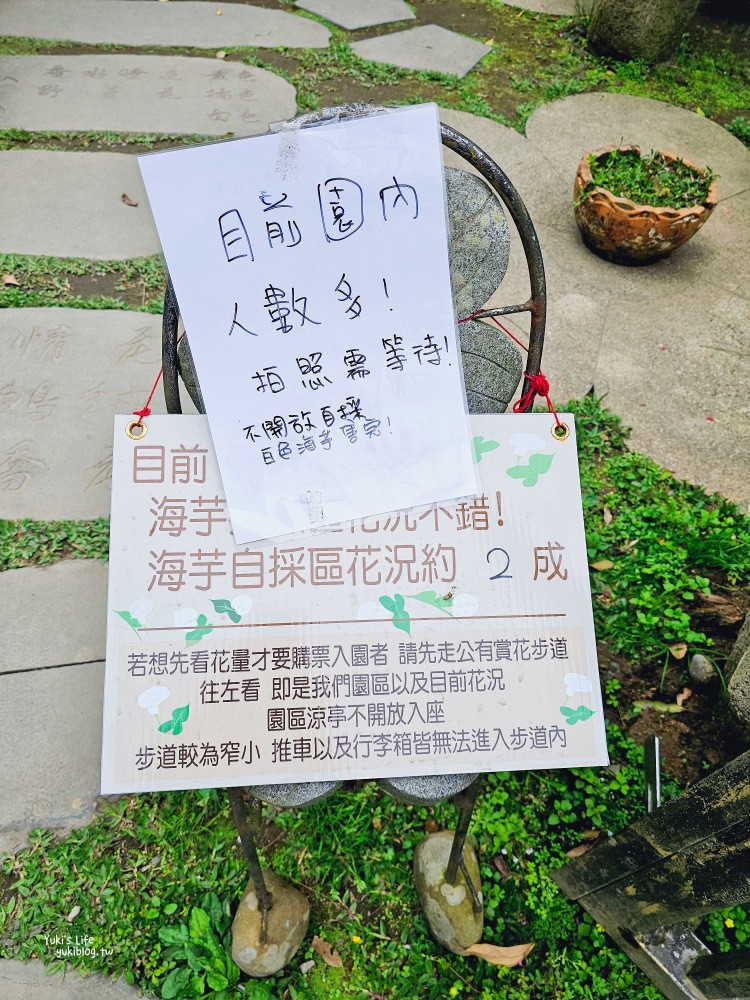 目前園內
人數多!
拍照需等待!
不開放自採
白色海芋售完!
目前
海芋
花況不錯!
海芋自採區花況約 2 成
若想先看花量才要購票入園者 請先走公有賞花步道
往左看 即是我們園區以及目前花況
園區涼亭不開放入座
步道較為窄小 推車以及行李箱皆無法進入步道內
Yuki's Life
yukiblog.tw